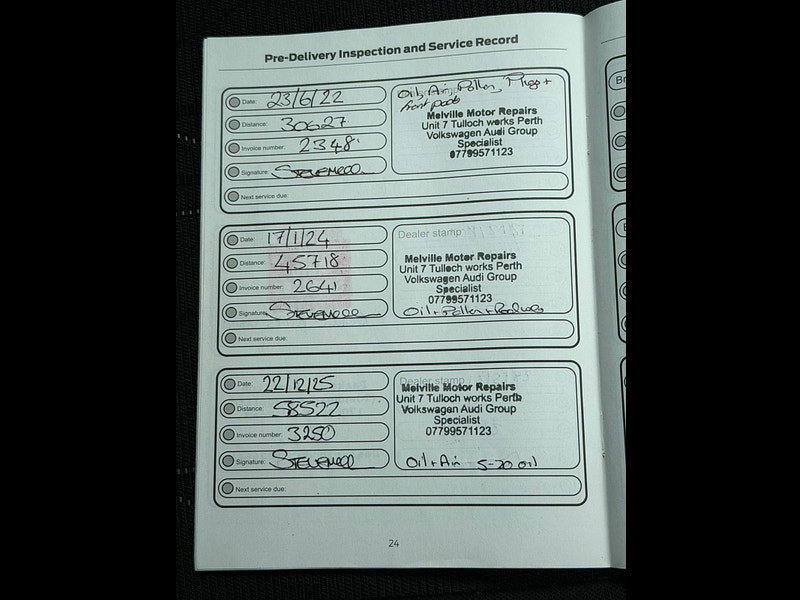 Pre-Delivery Inspection and Service Record
Date: 23/6/22
Distance: 30627
Invoice number: 2348
Signature:
Next service due:
Oil, Air, Pollen, Plugs +
front pads
Melville Motor Repairs
Unit 7 Tulloch works Perth
Volkswagen Audi Group
Specialist
07799571123
Date: 17/1/24
Distance: 45718
Invoice number: 2641
Signature:
Next service due:
Dealer stamp
Melville Motor Repairs
Unit 7 Tulloch works Perth
Volkswagen Audi Group
Specialist
07799571123
Oil + Pollen +
Date: 22/12/25
Distance: 58522
Invoice number: 3250
Signature:
Next service due:
Dealer stamp
Melville Motor Repairs
Unit 7 Tulloch works Perth
Volkswagen Audi Group
Specialist
07799571123
Oil + Air 5-20 oil
24
Br